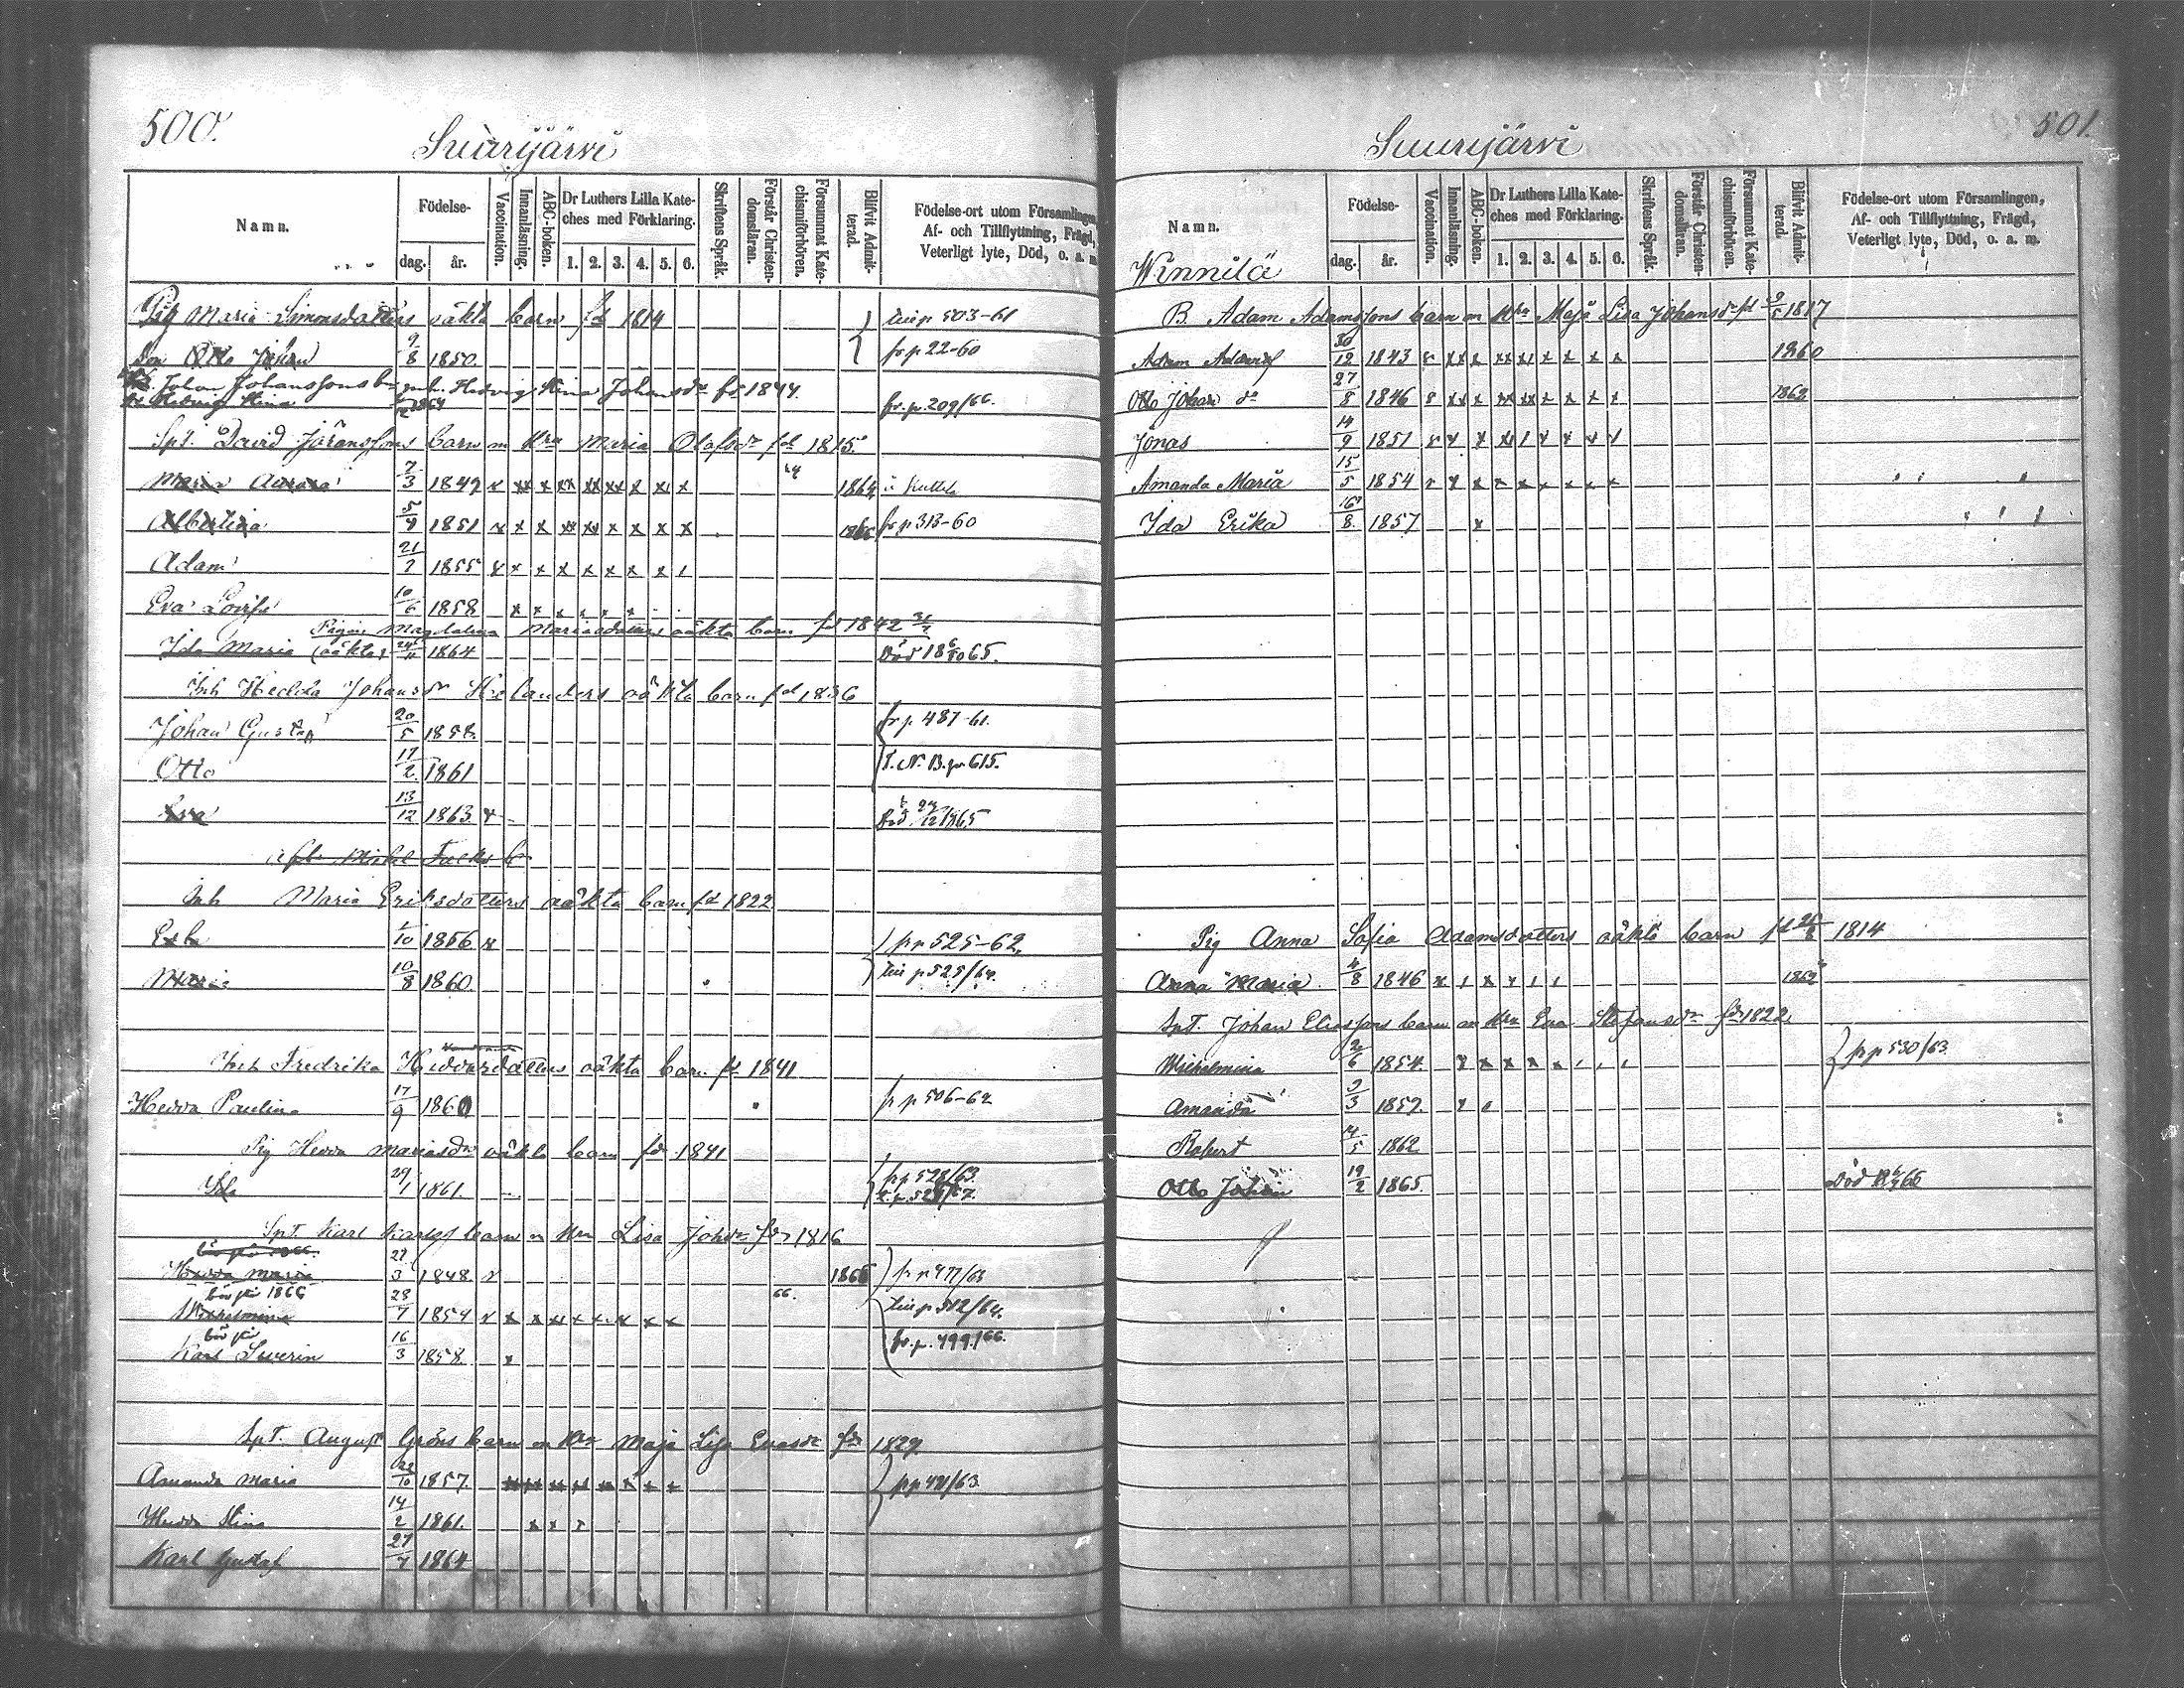 500.
Suurijärvi
Namn.
Födelse-
dag. år.
Vaccination.
Innanläsning.
ABC-boken.
Dr Luthers Lilla Kate-
ches med Förklaring.
1. 2. 3. 4. 5. 6.
Skriftens Språk.
Förstår Christen-
domsläran.
Försummat Kate-
chismiförhören.
Blifvit Admit-
terad.
Födelse-ort utom Församlingen,
Af- och Tillflyttning, Frägd,
Veterligt lyte, Död, o. a. m.
Pig Maria Simonsdotters oäkta barn fd 1814 till p 503-61
Son Otto Johan 9/8 1850. fr p 22-60
Johan Johanssons b m h Hedvig Stina Johansdr fd 1844.
Hedvig Stina 1864 fr. p. 209/66.
Spt. David Göranssons barn m Hru Maria Olofsdr fd 1815.
Maria Aurora 7/3 1849 x xx x xx xx xx x x x 1864
Albertina 5/4 1851 x x x xx xx x x x x 1866 fr p 313-60
Adam 21/7 1855 x x x x x x x x
Eva Lovisa 10/6 1858 x x x x x x
Pigan Magdalena Mariasdotters oäkta barn fd 1842
Ida Maria (oäkta) 24/11 1864 Död 18 6/10 65.
Inh Hedda Johansdr Helanders oäkta barn fd 1836
Johan Gustaf 20/5 1858. fr p 487-61.
Otto 17/2 1861 T. N. B. p 615.
Eva 13/12 1863 x Död 24/12 1865
Mickel Falks b
Inh Maria Eriksdotters oäkta barn fd 1822
1/10 1856 x fr p 525-62.
Maria 10/8 1860. till p 525/64.
Inh Fredrika Hedvardotters oäkta barn fd 1841
Hedda Paulina 17/9 1860 fr p 506-62
Pig Hedda Mariasdr oäkta barn fd 1841
Ida 29/1 1861. fr p 528/63.
Spt. Karl Karlss barn m Hru Lisa Johdr fd 1816
Hedda Maria 27/3 1848 x 1866 fr p 477/63
bör gå 1866 66.
Wilhelmina 28/7 1854 x x x x x x x x x till p 512/64.
bör gå
Karl Severin 16/3 1858. x fr. p. 499/66.
Spt. August Gröns barn m Hru Maja Lisa Enasdr fd 1829
Amanda Maria 22/10 1857.
Hedda Stina 14/2 1861. x x x
Karl Gustaf 27/7 1864
501.
Suurijärvi
Namn.
Winnilä
Födelse-
dag. år.
Vaccination.
Innanläsning.
ABC-boken.
Dr Luthers Lilla Kate-
ches med Förklaring.
1. 2. 3. 4. 5. 6.
Skriftens Språk.
Förstår Christen-
domsläran.
Försummat Kate-
chismiförhören.
Blifvit Admit-
terad.
Födelse-ort utom Församlingen,
Af- och Tillflyttning, Frägd,
Veterligt lyte, Död, o. a. m.
B. Adam Adamssons barn m Hru Maja Lisa Johansdr fd 9/5 1817
Adam 30/12 1843 x xx x xx xx x x x x 1860
Otto Johan 27/8 1846 x xx x xx xx x x x x 1862
Jonas 14/9 1851
Amanda Maria 15/5 1854
Ida Erika 16/8 1857 x
Pig Anna Sofia Adamsdotters oäkta barn fd 1814
Anna Maria 4/8 1846 1862
Spt. Johan Eliassons barn m Hru Eva Stefansdr fd 1822
Wilhelmina 2/6 1854 fr p 530/63.
Amanda 3/3 1859.
Robert 14/5 1862
Otto Johan 19/2 1865. Död